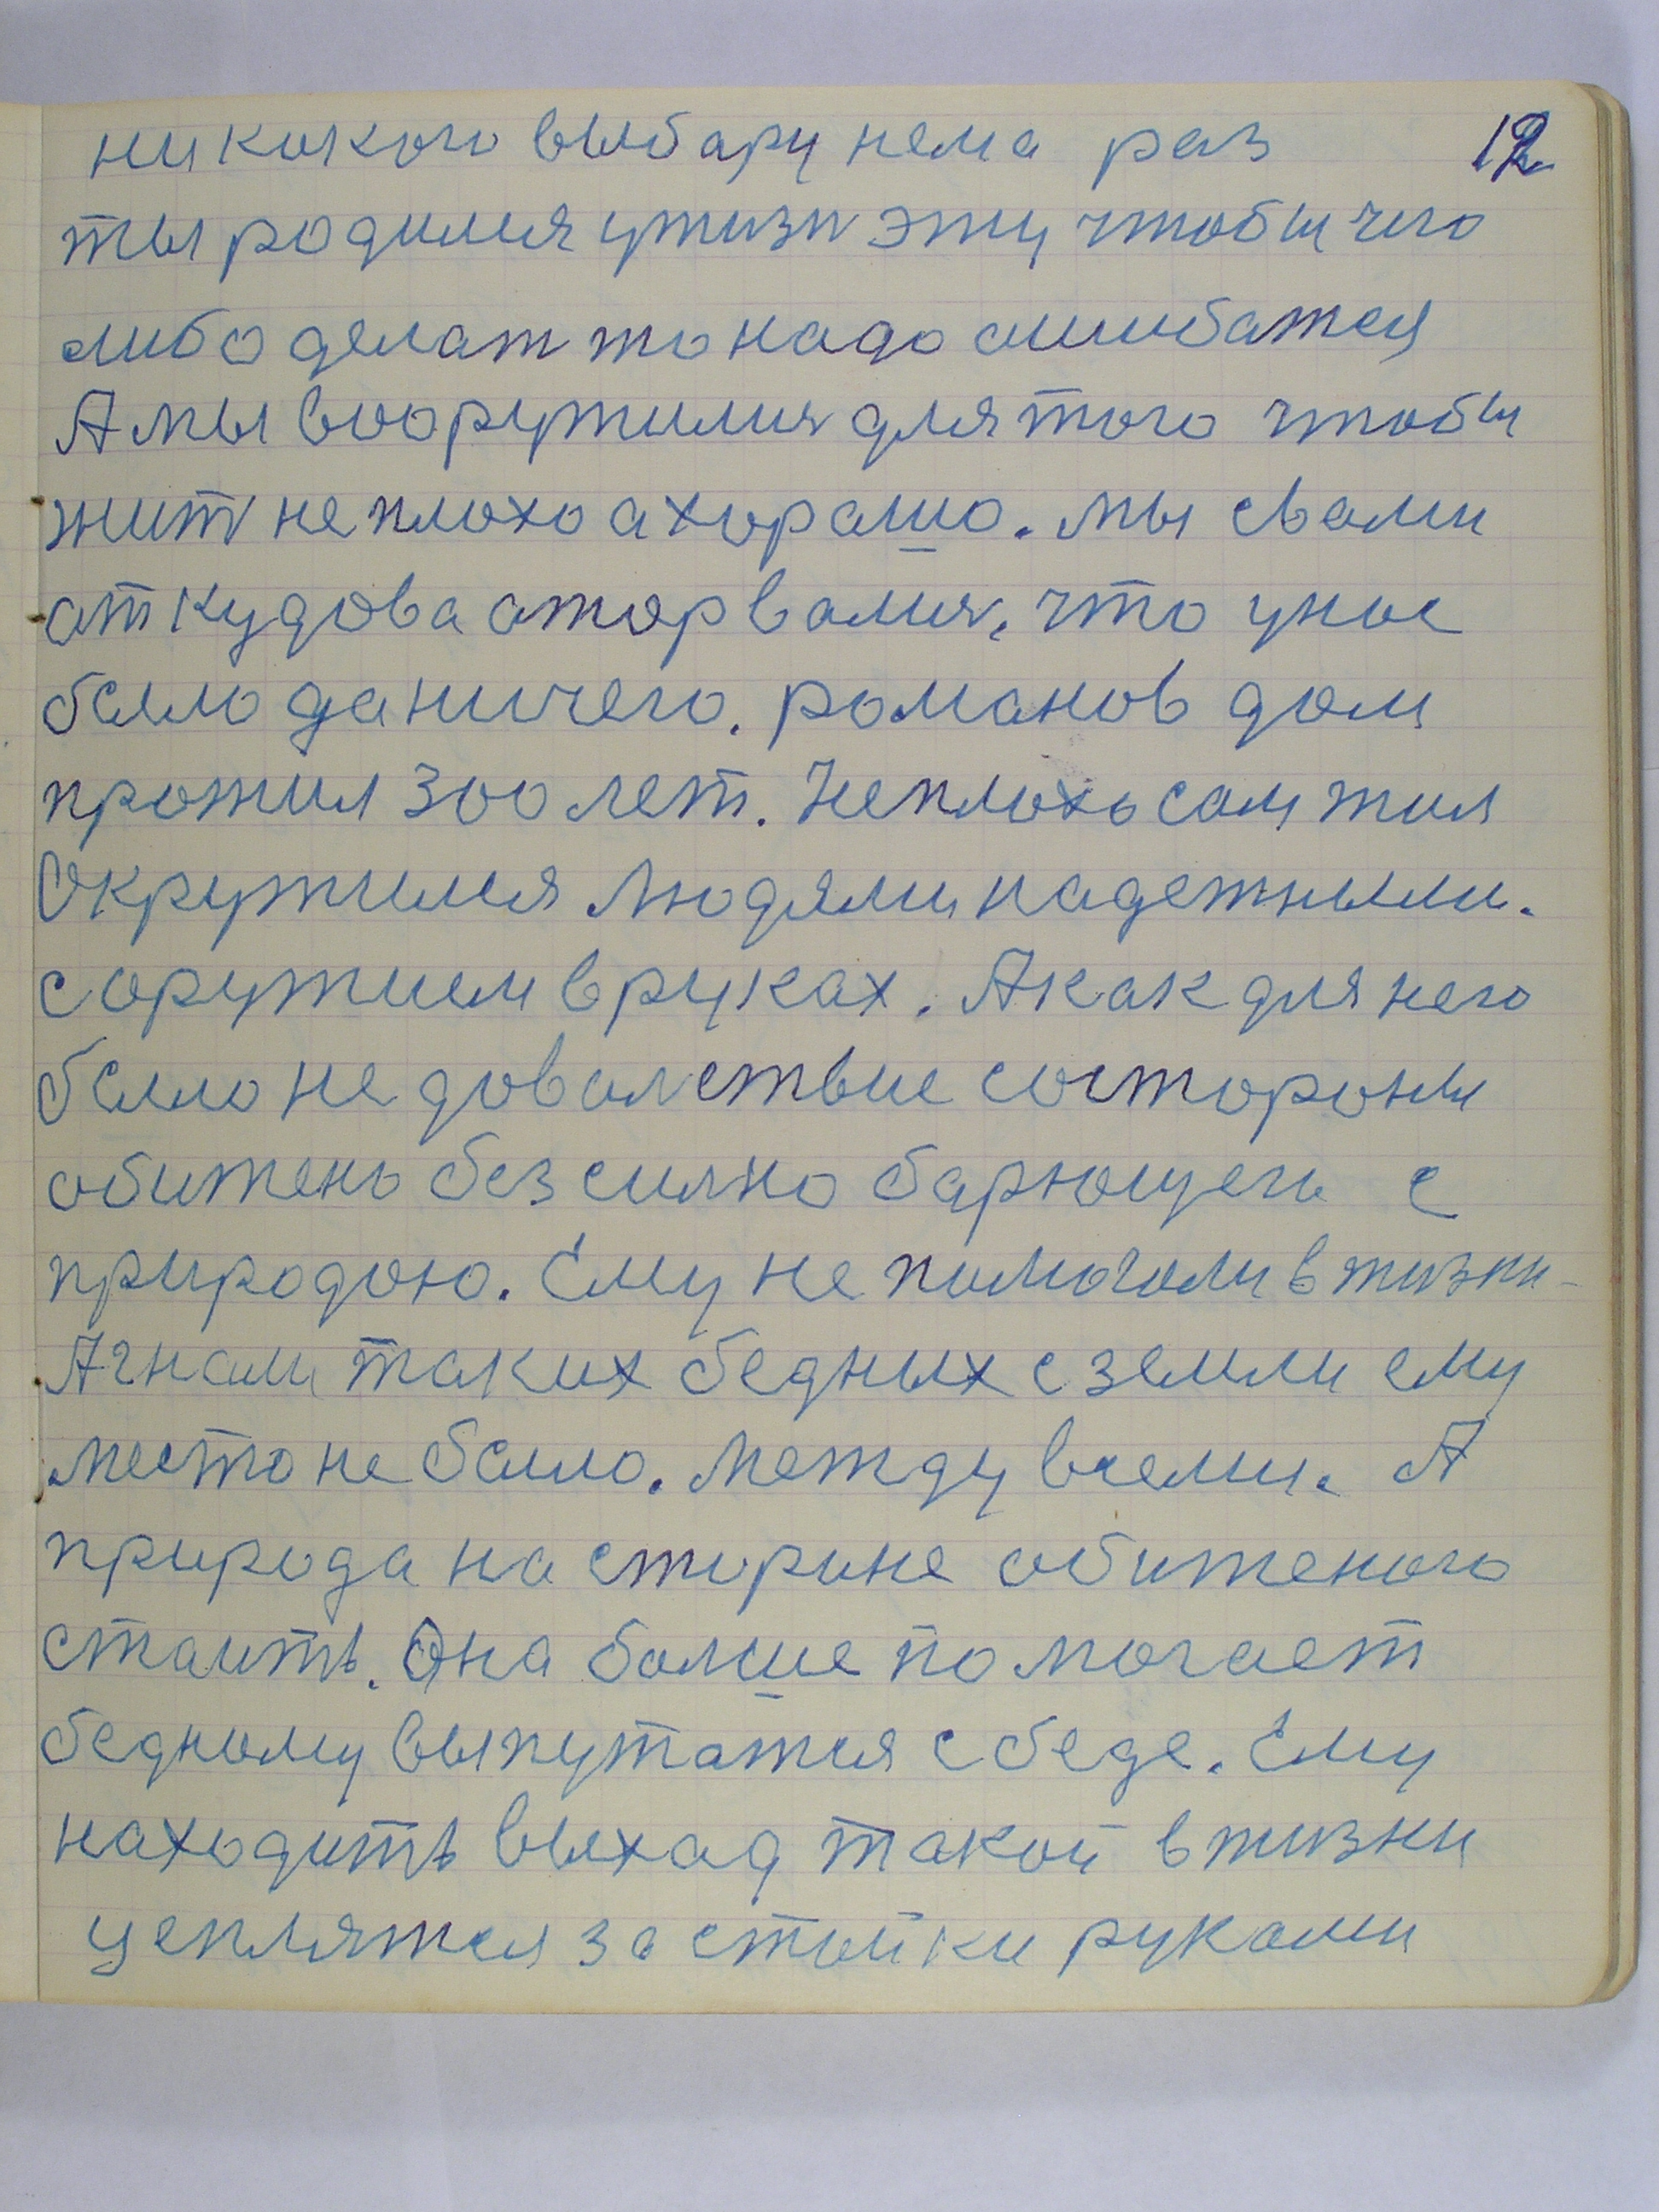 никокого выбару нема раз 12
ты родился ужизн эту чтобы чего
либо делат то надо ошибатся
А мы вооружился для того чтобы
жит не плохо а хорошо. мы свами
откудова оторвался, что унас
было да ничего. романов дом
прожил 300 лет. Неплохо сам жил
Окружился людями надежными.
с оружием в руках. А как для него
было не доволствие состороны
обижено безсилно барющего с
природою. Ему не помогали в жизни
А гнали таких бедных с земли ему
место не было. между всеми. А
природа на стороне обиженого
стаить. Она болше помогает
бедному выпутатся с беде. Ему
находить выход такой в жизни
цеплятся за стойки руками